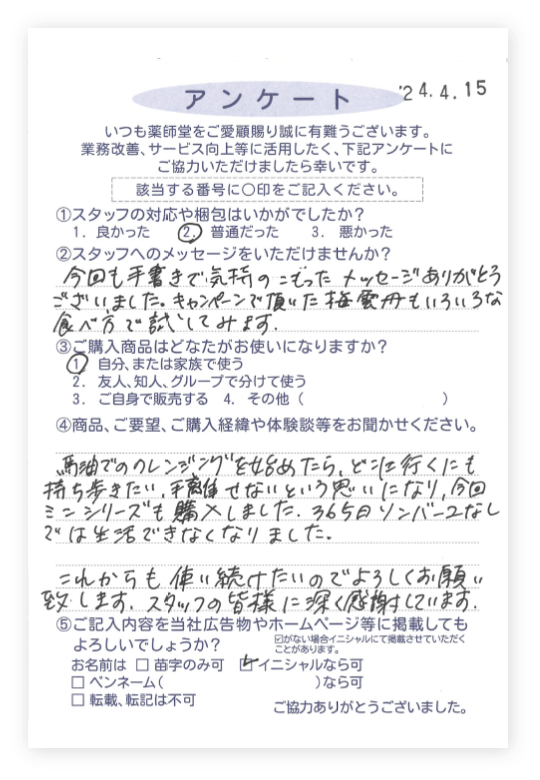 アンケート
'24.4.15
いつも薬師堂をご愛顧賜り誠に有難うございます。
業務改善、サービス向上等に活用したく、下記アンケートに
ご協力いただけましたら幸いです。
該当する番号に○印をご記入ください。
①スタッフの対応や梱包はいかがでしたか?
1. 良かった 2. 普通だった 3. 悪かった
②スタッフへのメッセージをいただけませんか?
今回も手書きで気持のこもった メッセージありがとう
ございました。キャンペーンで頂いた梅雲丹もいろいろな
食べ方で試してみます.
③ご購入商品はどなたがお使いになりますか?
1 自分、または家族で使う
2. 友人、知人、グループで分けて使う
3. ご自身で販売する 4. その他( )
④商品、ご要望、ご購入経緯や体験談等をお聞かせください。
馬油でのクレンジングを始めたら、どこに行くにも
持ち歩きたい.手離せないという思いになり、今回
ミニシリーズも購入しました. 365日ソンバーユなし
では生活できなくなりました。
これからも使い続けたいのでよろしくお願い
致します. スタッフの皆様に深く感謝しています.
⑤ご記入内容を当社広告物やホームページ等に掲載しても
よろしいでしょうか?
☑がない場合イニシャルにて掲載させていただく
ことがあります。
お名前は □ 苗字のみ可 ☑イニシャルなら可
□ ペンネーム( )なら可
□ 転載、転記は不可
ご協力ありがとうございました。